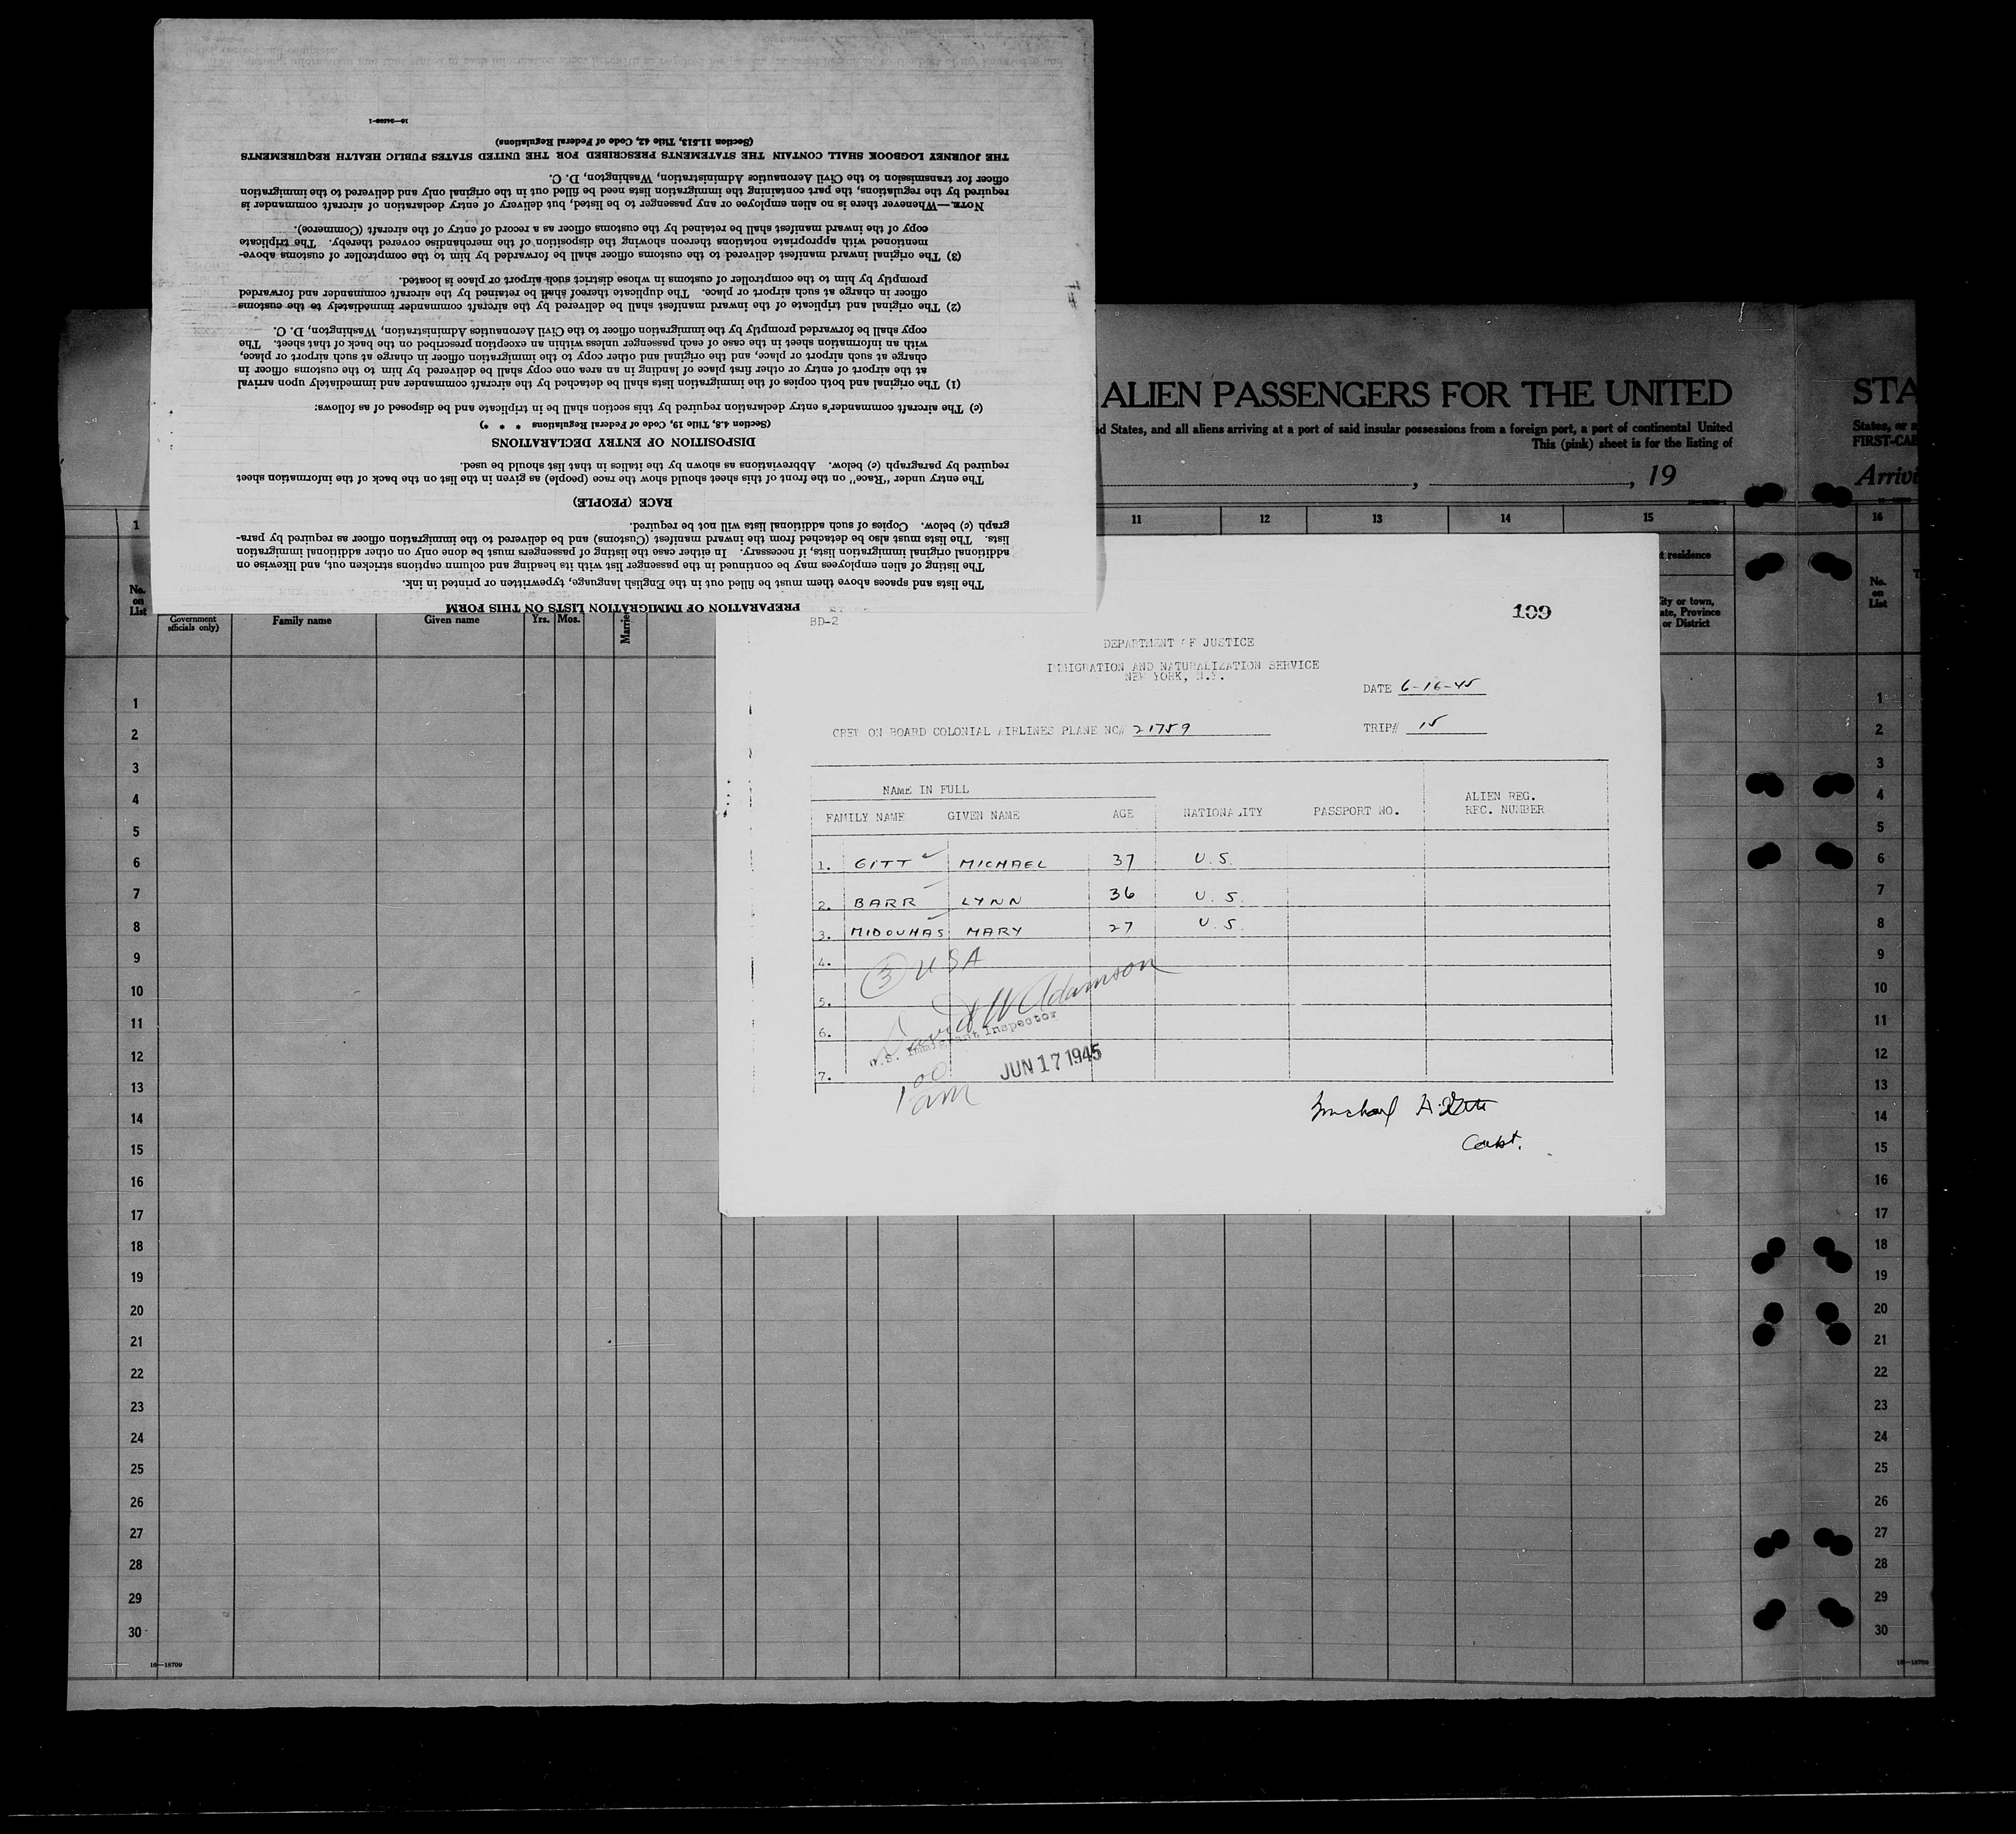 16—24408-1
PREPARATION OF IMMIGRATION LISTS ON THIS FORM
The lists and spaces above them must be filled out in the English language, typewritten or printed in ink.
The listing of alien employees may be continued in the passenger list with its heading and column captions stricken out, and likewise on
additional original immigration lists, if necessary. In either case the listing of passengers must be done only on other additional immigration
lists. The lists must also be detached from the inward manifest (Customs) and be delivered to the immigration officer as required by para-
graph (c) below. Copies of such additional lists will not be required.
RACE (PEOPLE)
The entry under "Race" on the front of this sheet should show the race (people) as given in the list on the back of the information sheet
required by paragraph (c) below. Abbreviations as shown by the italics in that list should be used.
DISPOSITION OF ENTRY DECLARATIONS
(Section 4.8, Title 19, Code of Federal Regulations * * *)
(c) The aircraft commander's entry declaration required by this section shall be in triplicate and be disposed of as follows:
(1) The original and both copies of the immigration lists shall be detached by the aircraft commander and immediately upon arrival
at the airport of entry or other first place of landing in an area one copy shall be delivered by him to the customs officer in
charge at such airport or place, and the original and other copy to the immigration officer in charge at such airport or place,
with an information sheet in the case of each passenger unless within an exception prescribed on the back of that sheet. The
copy shall be forwarded promptly by the immigration officer to the Civil Aeronautics Administration, Washington, D. C.
(2) The original and triplicate of the inward manifest shall be delivered by the aircraft commander immediately to the customs
officer in charge at such airport or place. The duplicate thereof shall be retained by the aircraft commander and forwarded
promptly by him to the comptroller of customs in whose district such airport or place is located.
(3) The original inward manifest delivered to the customs officer shall be forwarded by him to the comptroller of customs above-
mentioned with appropriate notations thereon showing the disposition of the merchandise covered thereby. The triplicate
copy of the inward manifest shall be retained by the customs officer as a record of entry of the aircraft (Commerce).
NOTE.—Whenever there is no alien employee or any passenger to be listed, but delivery of entry declaration of aircraft commander is
required by the regulations, the part containing the immigration lists need be filled out in the original only and delivered to the immigration
officer for transmission to the Civil Aeronautics Administration, Washington, D. C.
THE JOURNEY LOGBOOK SHALL CONTAIN THE STATEMENTS PRESCRIBED FOR THE UNITED STATES PUBLIC HEALTH REQUIREMENTS
(Section 11.513, Title 42, Code of Federal Regulations)
ALIEN PASSENGERS FOR THE UNITED STA
d States, and all aliens arriving at a port of said insular possessions from a foreign port, a port of continental United States, or a
This (pink) sheet is for the listing of FIRST-CAB
, , 19 Arrivi
1 11 12 13 14 15 16
No. on List
Government officials only) Family name Given name Yrs. Mos. Marrie
t residence
ity or town,
ate, Province
or District
No. on List
109
BD-2
DEPARTMENT OF JUSTICE
IMMIGRATION AND NATURALIZATION SERVICE
NEW YORK, N.Y.
DATE 6-16-45
CREW ON BOARD COLONIAL AIRLINES PLANE NC# 21759 TRIP# 15
NAME IN FULL
FAMILY NAME GIVEN NAME AGE NATIONALITY PASSPORT NO. ALIEN REG. REC. NUMBER
1. GITT MICHAEL 37 U.S.
2. BARR LYNN 36 U.S.
3. MIDOUHAS MARY 27 U.S.
4.
3 USA
5.
David W Adamson
6.
U.S. Immigrant Inspector
7.
JUN 17 1945
1 00 am
Michael A. Gitt
Capt.
1 1
2 2
3 3
4 4
5 5
6 6
7 7
8 8
9 9
10 10
11 11
12 12
13 13
14 14
15 15
16 16
17 17
18 18
19 19
20 20
21 21
22 22
23 23
24 24
25 25
26 26
27 27
28 28
29 29
30 30
16—18709 16—18709